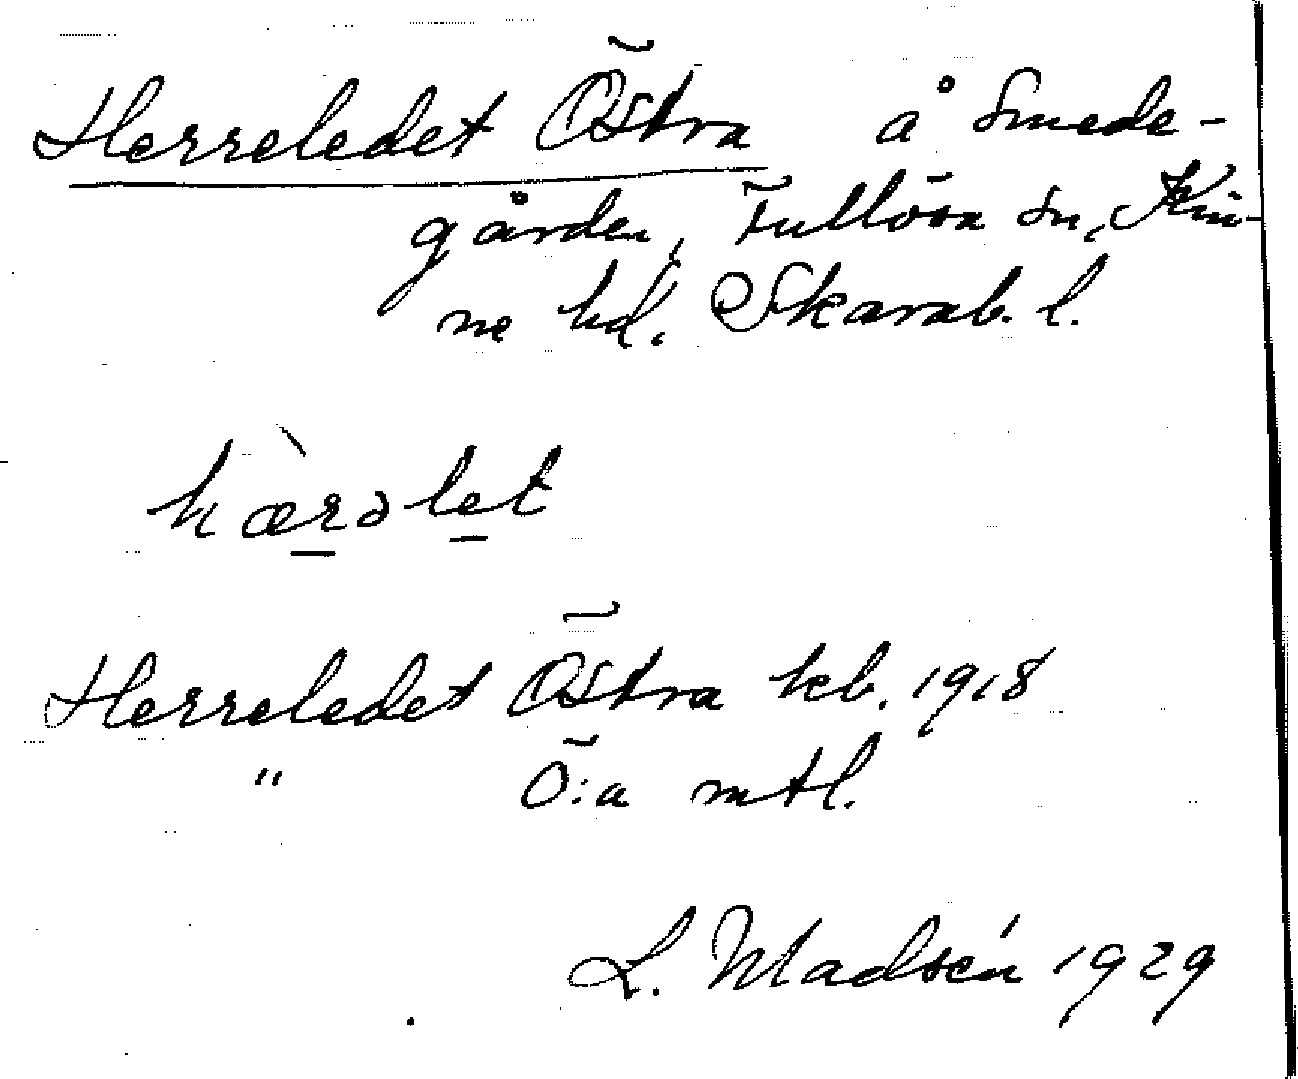 Herreledet Östra å Smede-
gården, Fullösa sn, Kin-
ne hd. Skarab. l.
hæ̀rəlet
Herreledet Östra kb. 1918
" Ö:a mtl.
L. Madsén 1929